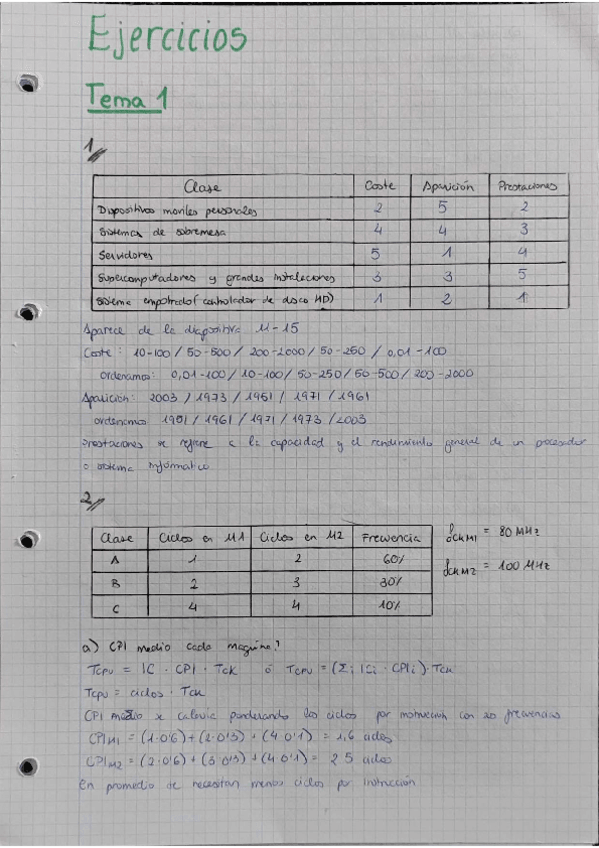 Ejercicios
Tema 1
1//
Clase Coste Aparición Prestaciones
Dispositivos moviles personales 2 5 2
Sistemas de sobremesa 4 4 3
Servidores 5 1 4
Supercomputadores y grandes instalaciones 3 3 5
Sistema empotrado (controlador de disco HD) 1 2 1
Aparece de la diapositiva 11-15
Coste: 10-100 / 50-500 / 200-2000 / 50-250 / 0,01-100
Ordenamos: 0,01-100 / 10-100 / 50-250 / 50-500 / 200-2000
Aparición: 2003 / 1973 / 1951 / 1971 / 1961
ordenamos 1951 / 1961 / 1971 / 1973 / 2003
Prestaciones se refiere a la capacidad y el rendimiento general de un procesador
o sistema informatico
2//
Clase Ciclos en M1 Ciclos en M2 Frecuencia
A 1 2 60%
B 2 3 30%
C 4 4 10%
fCKM1 = 80 MHz
fCKM2 = 100 MHz
a) CPI medio cada maquina?
TCPU = IC · CPI · TCK ó TCPU = (Σi ICi · CPIi) · TCK
TCPU = ciclos · TCK
CPI medio se calcula ponderando los ciclos por instrucción con sus frecuencias
CPIM1 = (1·0'6) + (2·0'3) + (4·0'1) = 1,6 ciclos
CPIM2 = (2·0'6) + (3·0'3) + (4·0'1) = 2 5 ciclos
En promedio se necesitan menos ciclos por instrucción